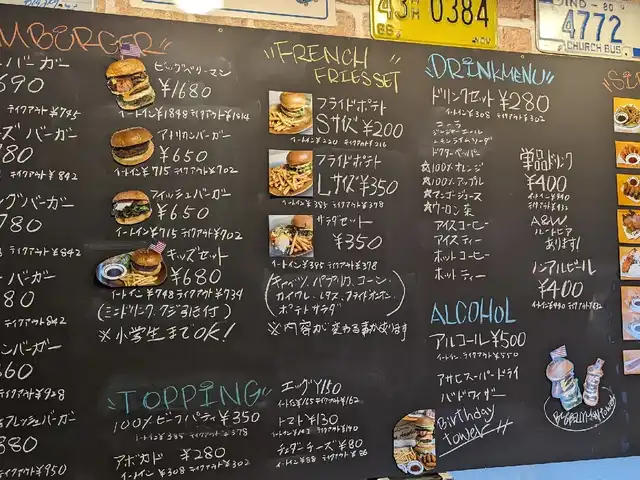 43 A 0384
86
IND - 80
4772
CHURCH BUS
MBURGER
バーガー
690
テイクアウト ¥745
ズバーガー
780
テイクアウト ¥842
グバーガー
780
テイクアウト ¥842
バーガー
80
テイクアウト ¥842
ンバーガー
660
バーガー
880
テイクアウト ¥950
ビッグベリーマン
¥1680
イートイン ¥1848 テイクアウト ¥1814
アメリカンバーガー
¥650
イートイン ¥715 テイクアウト ¥702
フィッシュバーガー
¥650
イートイン ¥715 テイクアウト ¥702
キッズセット
¥680
イートイン ¥748 テイクアウト ¥734
(ミニドリンク、クジ引き付)
※小学生までOK!
FRENCH
FRIES SET
フライドポテト
Sサイズ ¥200
イートイン ¥220 テイクアウト ¥216
フライドポテト
Lサイズ ¥350
イートイン ¥385 テイクアウト ¥378
サラダセット
¥350
イートイン ¥385 テイクアウト ¥378
キャベツ、パプリカ、コーン、
ポテトサラダ
※内容が変わる事があります
TOPPING
100% ビーフパティ ¥350
イートイン ¥385 テイクアウト ¥378
アボカド ¥280
イートイン ¥308 テイクアウト ¥302
エッグ ¥150
イートイン ¥165 テイクアウト ¥162
トマト ¥130
イートイン ¥143 テイクアウト ¥140
チェダーチーズ ¥80
イートイン ¥88 テイクアウト ¥86
DRINK MENU
ドリンクセット ¥280
イートイン ¥308 テイクアウト ¥302
コーラ
ジンジャーエール
ドクターペッパー
☆100% オレンジ
☆100% アップル
☆マンゴージュース
☆ウーロン茶
アイスコーヒー
アイスティー
ホットコーヒー
ホットティー
単品ドリンク
¥400
イートイン ¥440
テイクアウト ¥432
A&W
ルートビア
あります!
ノンアルビール
¥400
イートイン ¥440 テイクアウト ¥432
ALCOHOL
アルコール ¥500
イートイン、テイクアウト ¥550
アサヒスーパードライ
バドワイザー
Birthday
tower
SI